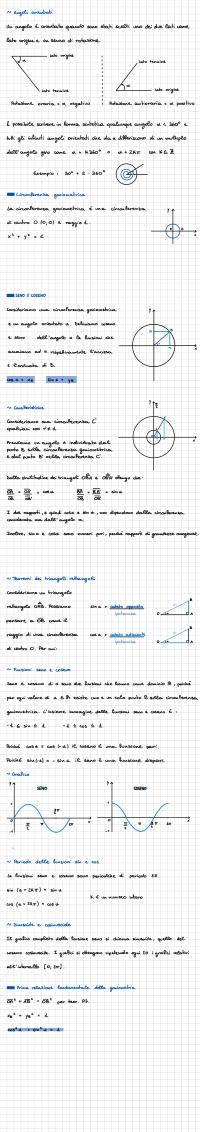 ~ Angoli orientati
Un angolo è orientato quando sono stati scelti uno dei due lati come
lato origine e un senso di rotazione.
lato origine
lato termine
lato termine
lato origine
Rotazione oraria = α negativo
Rotazione antioraria = α positivo
È possibile scrivere in forma sintetica qualunque angolo α < 360° e
tutti gli infiniti angoli orientati che da α differiscono di un multiplo
dell'angolo giro come α + K360° o α + 2Kπ con K ∈ Z
Esempio: 30° + 2 · 360°
Circonferenza goniometrica
La circonferenza goniometrica è una circonferenza
di centro O (0,0) e raggio 1.
x² + y² = 1
SENO E COSENO
Consideriamo una circonferenza goniometrica
e un angolo orientato α. Definiamo coseno
e seno dell'angolo α le funzioni che
associano ad α rispettivamente l'ascissa
e l'ordinata di B.
cos α = x_B sin α = y_B
~ Caratteristiche
Consideriamo una circonferenza C'
I due rapporti, e quindi cos α e sin α, non dipendono dalla circonferenza
considerata ma dall'angolo α.
Inoltre, sin e cos sono numeri puri, perché rapporti di grandezze omogenee.
~ Teoremi dei triangoli rettangoli
Consideriamo un triangolo
rettangolo OAB. Possiamo
pensare a OB come il
raggio di una circonferenza
di centro O. Per cui:
sin α = cateto opposto
ipotenusa
cos α = cateto adiacente
ipotenusa
~ Funzioni seno e coseno
Seno e coseno di α sono due funzioni che hanno come dominio R, poiché
per ogni valore di α ∈ R esiste uno e un solo punto B sulla circonferenza
goniometrica. L'insieme immagine delle funzioni seno e coseno è:
-1 ≤ sin ≤ 1 -1 ≤ cos ≤ 1
Poiché cos α = cos (-α) il coseno è una funzione pari.
Poiché sin(-α) = - sin α il seno è una funzione dispari.
~ Grafico
SENO
COSENO
~ Periodo delle funzioni sin e cos
Le funzioni seno e coseno sono periodiche di periodo 2π.
sin (α + 2Kπ) = sin α
cos (α + 2Kπ) = cos α
K è un numero intero
~ Sinusoide e cosinusoide
Il grafico completo della funzione seno si chiama sinusoide, quello del
coseno cosinusoide. I grafici si ottengono ripetendo ogni 2π i grafici relativi
all'intervallo [0, 2π].
Prima relazione fondamentale della goniometria
OA² + AB² = OB² per teor. Pit.
x_B² + y_B² = 1
cos²α + sin²α = 1